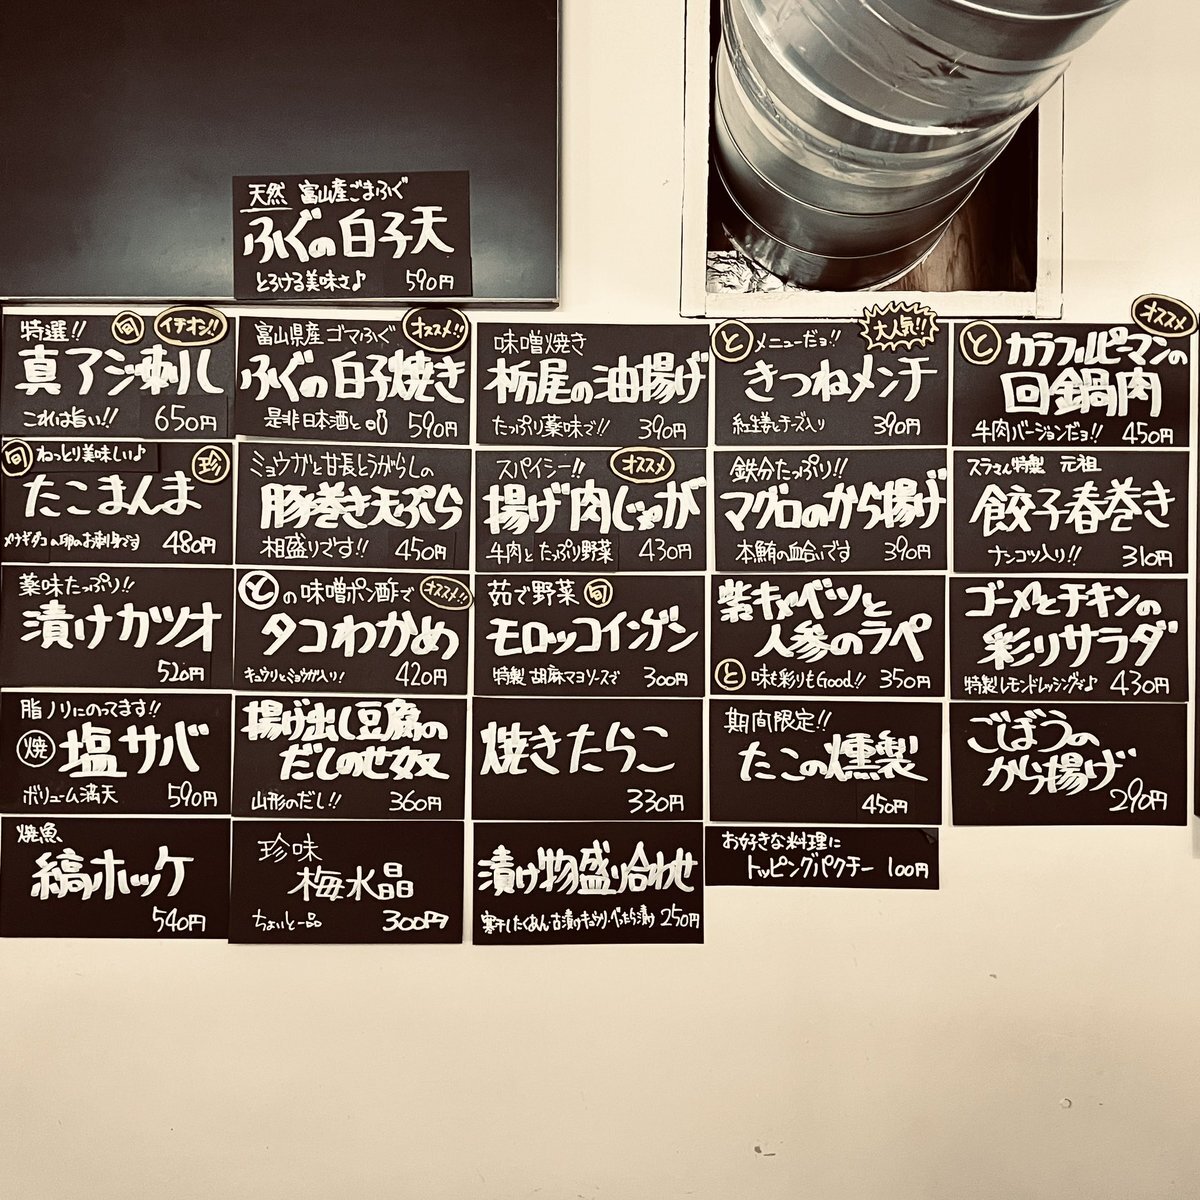 天然 富山産ごまふぐ
ふぐの白子天
とろける美味さ♪ 590円
特選!! 旬 イチオシ!!
真アジ刺し
これは旨い!! 650円
富山県産ゴマふぐ オススメ!!
ふぐの白子焼き
是非日本酒と 590円
味噌焼き
栃尾の油揚げ
たっぷり薬味で!! 390円
と メニューだョ!! 大人気!!
きつねメンチ
紅生姜とチーズ入り 390円
オススメ
と カラフルピーマンの
回鍋肉
牛肉バージョンだヨ!! 450円
旬 ねっとり美味しい♪ 珍
たこまんま
の卵のお刺身です 480円
ミョウガと甘長とうがらしの
豚巻き天ぷら
相盛りです!! 450円
スパイシー!! オススメ
揚げ肉じゃが
牛肉とたっぷり野菜 430円
鉄分たっぷり!!
マグロのから揚げ
本鮪の血合いです 390円
スラさん特製 元祖
餃子春巻き
ナンコツ入り!! 310円
薬味たっぷり!!
漬けカツオ
520円
との味噌ポン酢で オススメ!!
タコわかめ
キュウリとミョウガ入り! 420円
茹で野菜 旬
モロッコインゲン
特製胡麻マヨソースで 300円
紫キャベツと
人参のラペ
と 味も彩りもGood!! 350円
ゴーヤとチキンの
彩りサラダ
特製レモンドレッシングで♪ 430円
脂ノリにのってます!!
焼 塩サバ
ボリューム満天 590円
揚げ出し豆腐の
だしのせ奴
山形のだし!! 360円
焼きたらこ
330円
期間限定!!
たこの燻製
450円
ごぼうの
から揚げ
290円
焼魚
縞ホッケ
540円
珍味
梅水晶
ちょいと一品 300円
漬け物盛り合わせ
寒干したくあん・古漬けキュウリ・べったら漬け 250円
お好きな料理に
トッピングパクチー 100円